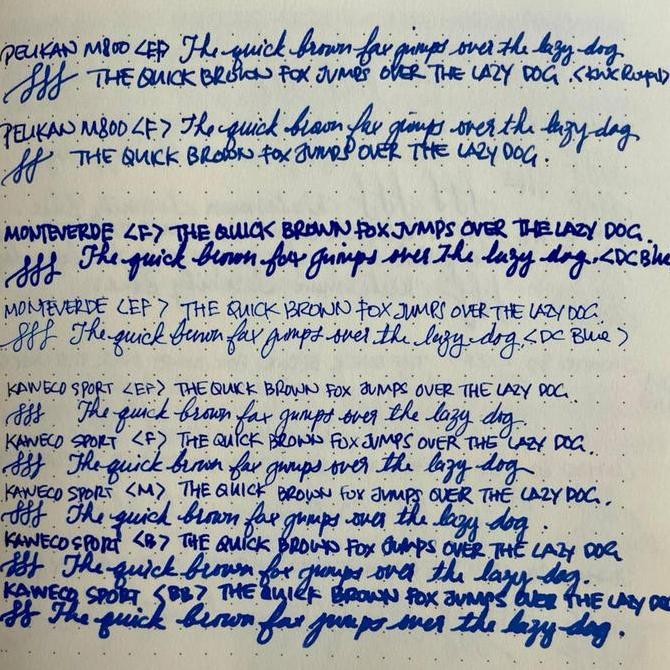 PELIKAN M800 <EF> The quick brown fox jumps over the lazy dog
fff THE QUICK BROWN FOX JUMPS OVER THE LAZY DOG.
PELIKAN M800 <F> The quick brown fox jumps over the lazy dog
ff THE QUICK BROWN FOX JUMPS OVER THE LAZY DOG.
MONTEVERDE <F> THE QUICK BROWN FOX JUMPS OVER THE LAZY DOG.
fff The quick brown fox jumps over the lazy dog. <DC Blue
MONTEVERDE <EF> THE QUICK BROWN FOX JUMPS OVER THE LAZY DOG.
fff The quick brown fox jumps over the lazy dog. <DC Blue>
KAWECO SPORT <EF> THE QUICK BROWN FOX JUMPS OVER THE LAZY DOG.
fff The quick brown fox jumps over the lazy dog.
KAWECO SPORT <F> THE QUICK BROWN FOX JUMPS OVER THE LAZY DOG.
fff The quick brown fox jumps over the lazy dog
KAWECO SPORT <M> THE QUICK BROWN FOX JUMPS OVER THE LAZY DOG.
fff The quick brown fox jumps over the lazy dog.
KAWECO SPORT <B> THE QUICK BROWN FOX JUMPS OVER THE LAZY DOG
fff The quick brown fox jumps over the lazy dog.
KAWECO SPORT <BB> THE QUICK BROWN FOX JUMPS OVER THE LAZY DO
ff The quick brown fox jumps over the lazy dog.